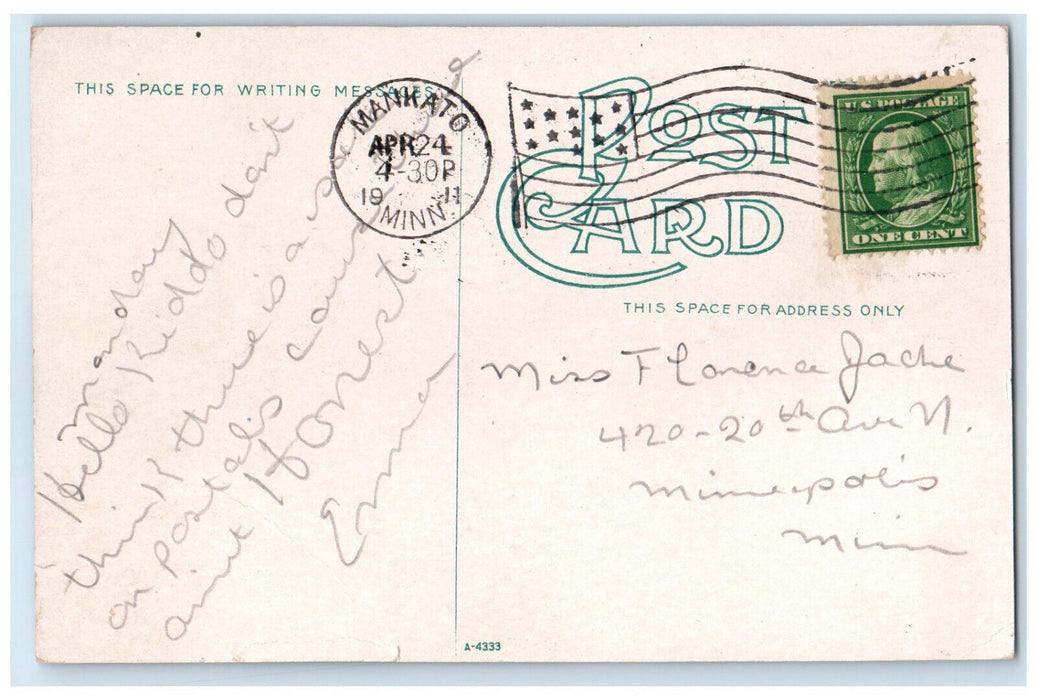 THIS SPACE FOR WRITING MESSAGES
MANKATO
APR 24
4-30P
19 11
MINN.
POST
CARD
U.S. POSTAGE
ONE CENT
THIS SPACE FOR ADDRESS ONLY
Monday
Hello Kiddo don't
think there is a
on Postals cause
aint Honest
Emma
Miss Florence Jache
420-20th Ave N.
Minneapolis
Minn
A-4333